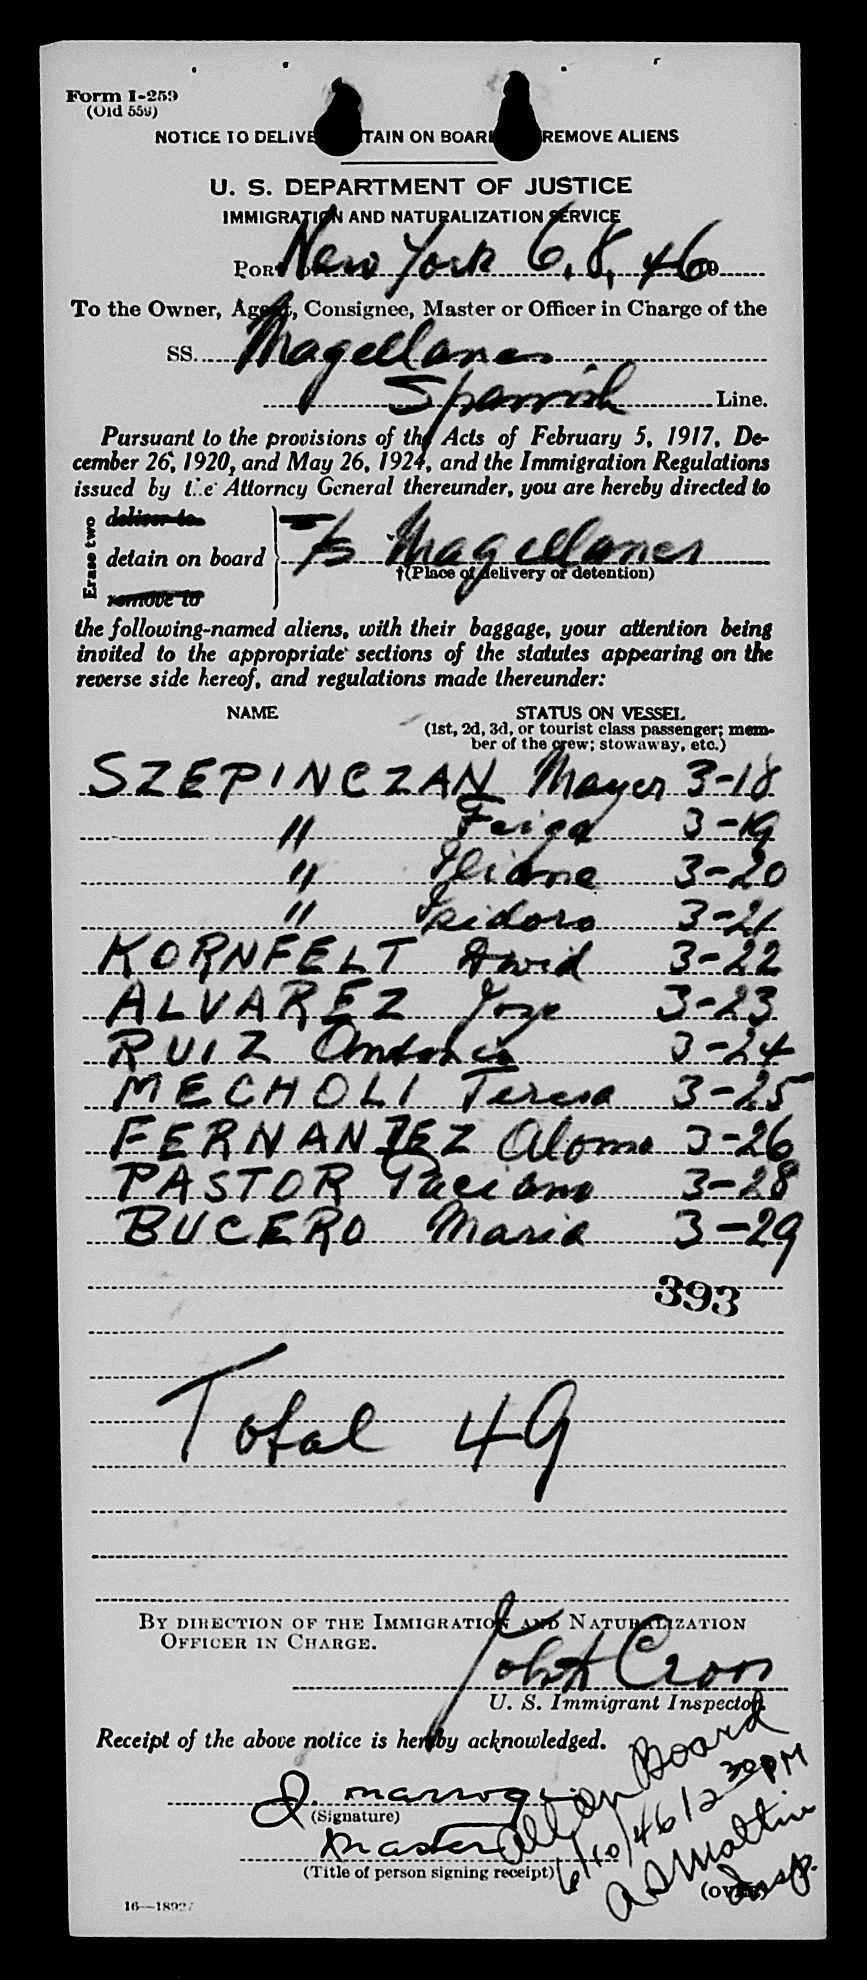 Form I-259
(Old 559)
NOTICE TO DELIVE TAIN ON BOAR REMOVE ALIENS
U. S. DEPARTMENT OF JUSTICE
IMMIGRATION AND NATURALIZATION SERVICE
PORT OF New York 6, 8, 46 19
To the Owner, Agent, Consignee, Master or Officer in Charge of the
SS. Magellanes
Spanish Line.
Pursuant to the provisions of the Acts of February 5, 1917, De-
cember 26, 1920, and May 26, 1924, and the Immigration Regulations
issued by the Attorney General thereunder, you are hereby directed to
Erase two
deliver to
detain on board
remove to
Magellanes
†(Place of delivery or detention)
the following-named aliens, with their baggage, your attention being
invited to the appropriate sections of the statutes appearing on the
reverse side hereof, and regulations made thereunder:
NAME STATUS ON VESSEL
(1st, 2d, 3d, or tourist class passenger; mem-
ber of the crew; stowaway, etc.)
SZEPINCZAN Mayer 3-18
" Feiga 3-19
" Iliane 3-20
" Isidoro 3-21
KORNFELT David 3-22
ALVAREZ Jose 3-23
RUIZ Antonio 3-24
MECHOLI Teresa 3-25
FERNANDEZ 3-26
PASTOR Paciano 3-28
BUCERO Maria 3-29
393
Total 49
BY DIRECTION OF THE IMMIGRATION AND NATURALIZATION
OFFICER IN CHARGE.
Cron
U. S. Immigrant Inspector.
Receipt of the above notice is hereby acknowledged.
(Signature)
Master
(Title of person signing receipt)
All on Board
6/10/46 12 30 PM
Insp.
(over)
16—18927